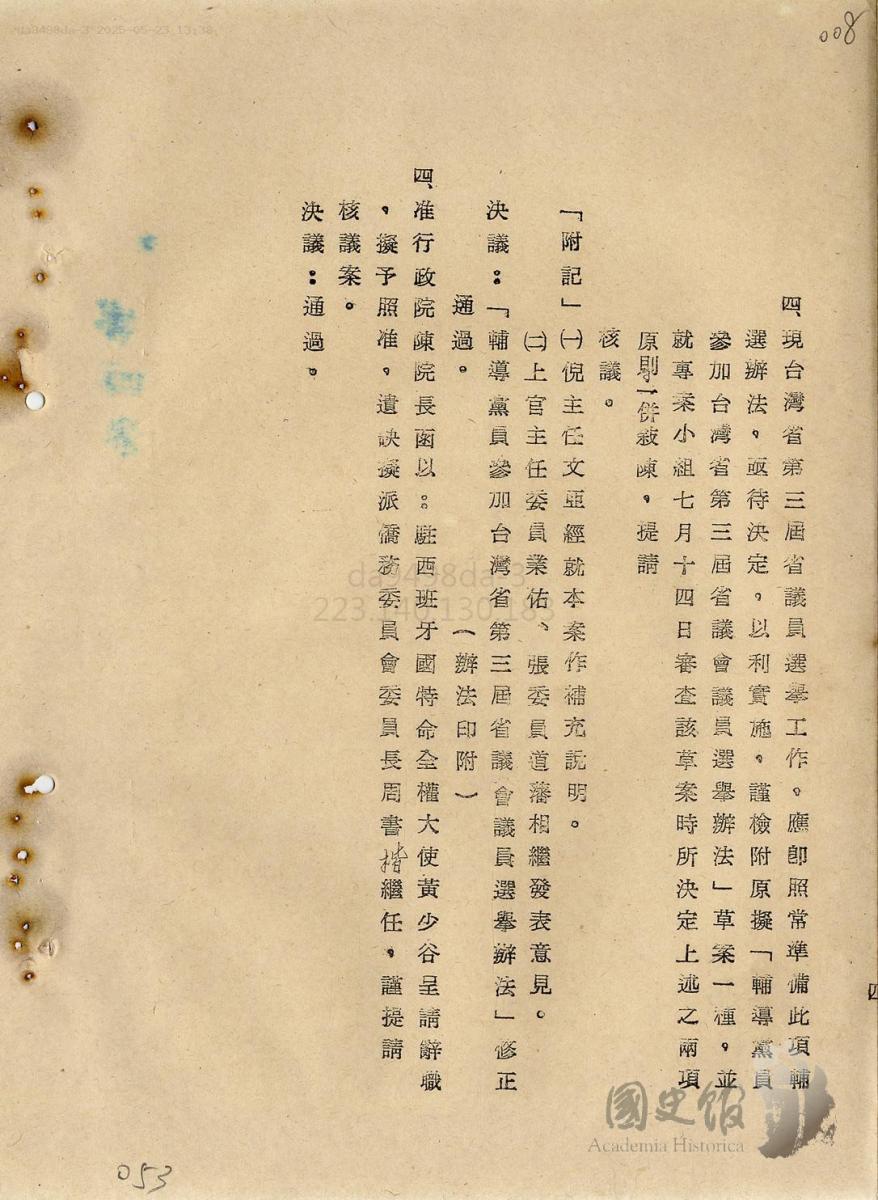 008
四、現台灣省第三屆省議員選舉工作,應即照常準備此項輔
選辦法,亟待決定,以利實施,謹檢附原擬「輔導黨員
參加台灣省第三屆省議會議員選舉辦法」草案一種,並
就專案小組七月十四日審查該草案時所決定上述之兩項
原則一併敍陳,提請
核議。
「附記」㈠倪主任文亞經就本案作補充說明。
㈡上官主任委員業佑、張委員道藩相繼發表意見。
決議:「輔導黨員參加台灣省第三屆省議會議員選舉辦法」修正
通過。(辦法印附)
四、准行政院陳院長函以:駐西班牙國特命全權大使黃少谷呈請辭職
,擬予照准,遺缺擬派僑務委員會委員長周書楷繼任,謹提請
核議案。
決議:通過。
四
053
國史館
Academia Historica
da9498da-3
223.140.130.183
da9498da-3 2025-05-23 13:38